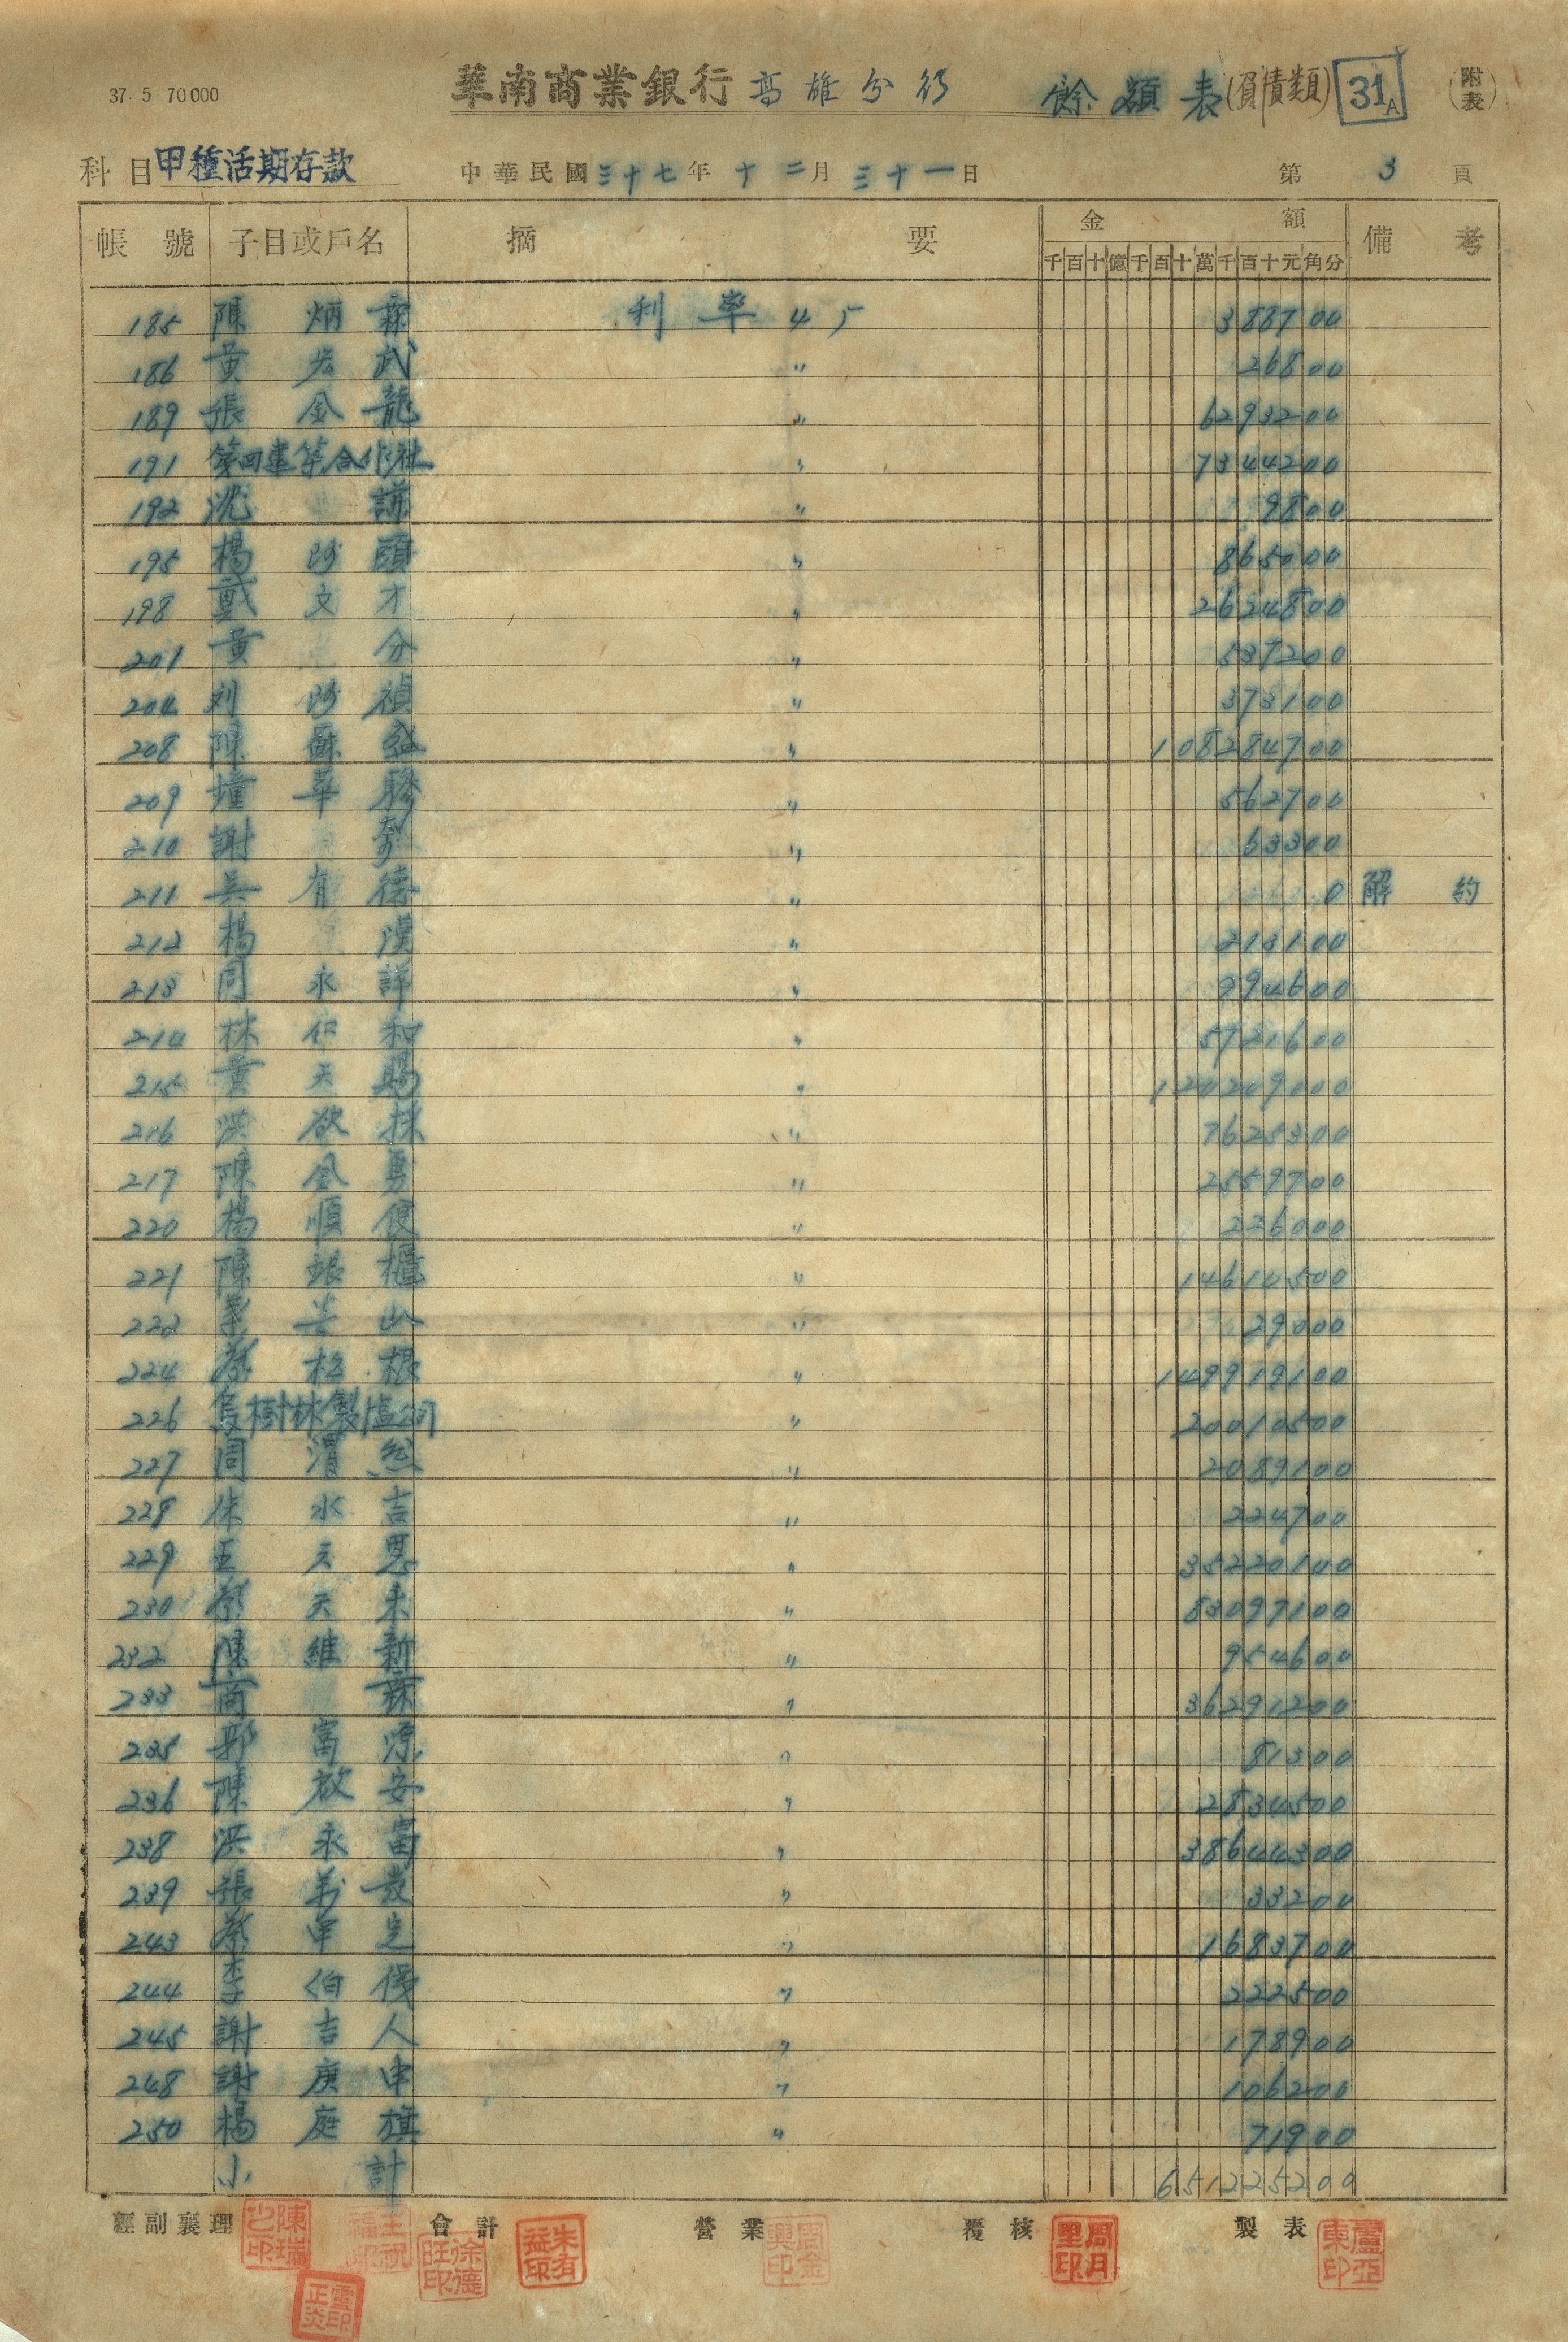 37. 5 70000
華南商業銀行 高雄分行 餘額表(負債類) 31A (附表)
科目 甲種活期存款 中華民國三十七年十二月三十一日 第 3 頁
帳號 子目或戶名 摘要 金額 備考
千百十億千百十萬千百十元角分
185 陳炳霖 利率 45 388700
186 黃宏武 〃 26800
189 張金龍 〃 6293200
191 第四建築合作社 〃 7344200
192 沈 〃 9800
195 楊頭 〃 865000
198 戴文才 〃 2624800
201 黃分 〃 537200
204 刘禎 〃 373100
208 陳盛 〃 108284700
209 華 〃 562700
210 謝 〃 63300
211 吳有德 〃 0 解約
212 楊漢 〃 213100
213 周永詳 〃 994600
214 林仁和 〃 5721600
215 黃天賜 〃 120209000
216 洪欲 〃 7625300
217 陳金勇 〃 2559700
220 楊順便 〃 226000
221 陳 〃 14610500
222 山 〃 29000
224 蔡松根 〃 149919100
226 烏樹林製塩公司 〃 20010500
227 周清 〃 2089100
228 朱水吉 〃 224700
229 王天恩 〃 35220100
230 蔡天来 〃 83097100
232 陳維新 〃 954600
233 商 〃 36291200
235 郭富源 〃 81300
236 陳啟安 〃 2834500
238 洪永富 〃 38644300
239 張萬發 〃 33200
243 蔡定 〃 1683700
244 李伯 〃 222500
245 謝吉人 〃 178900
248 謝庚申 〃 106200
250 楊庭旗 〃 71900
小計 651225200
經副襄理 會計 營業 覆核 製表
陳瑞之印 王祝福印 徐德旺印 朱有益印 周金興印 周月里印 盧亞東印